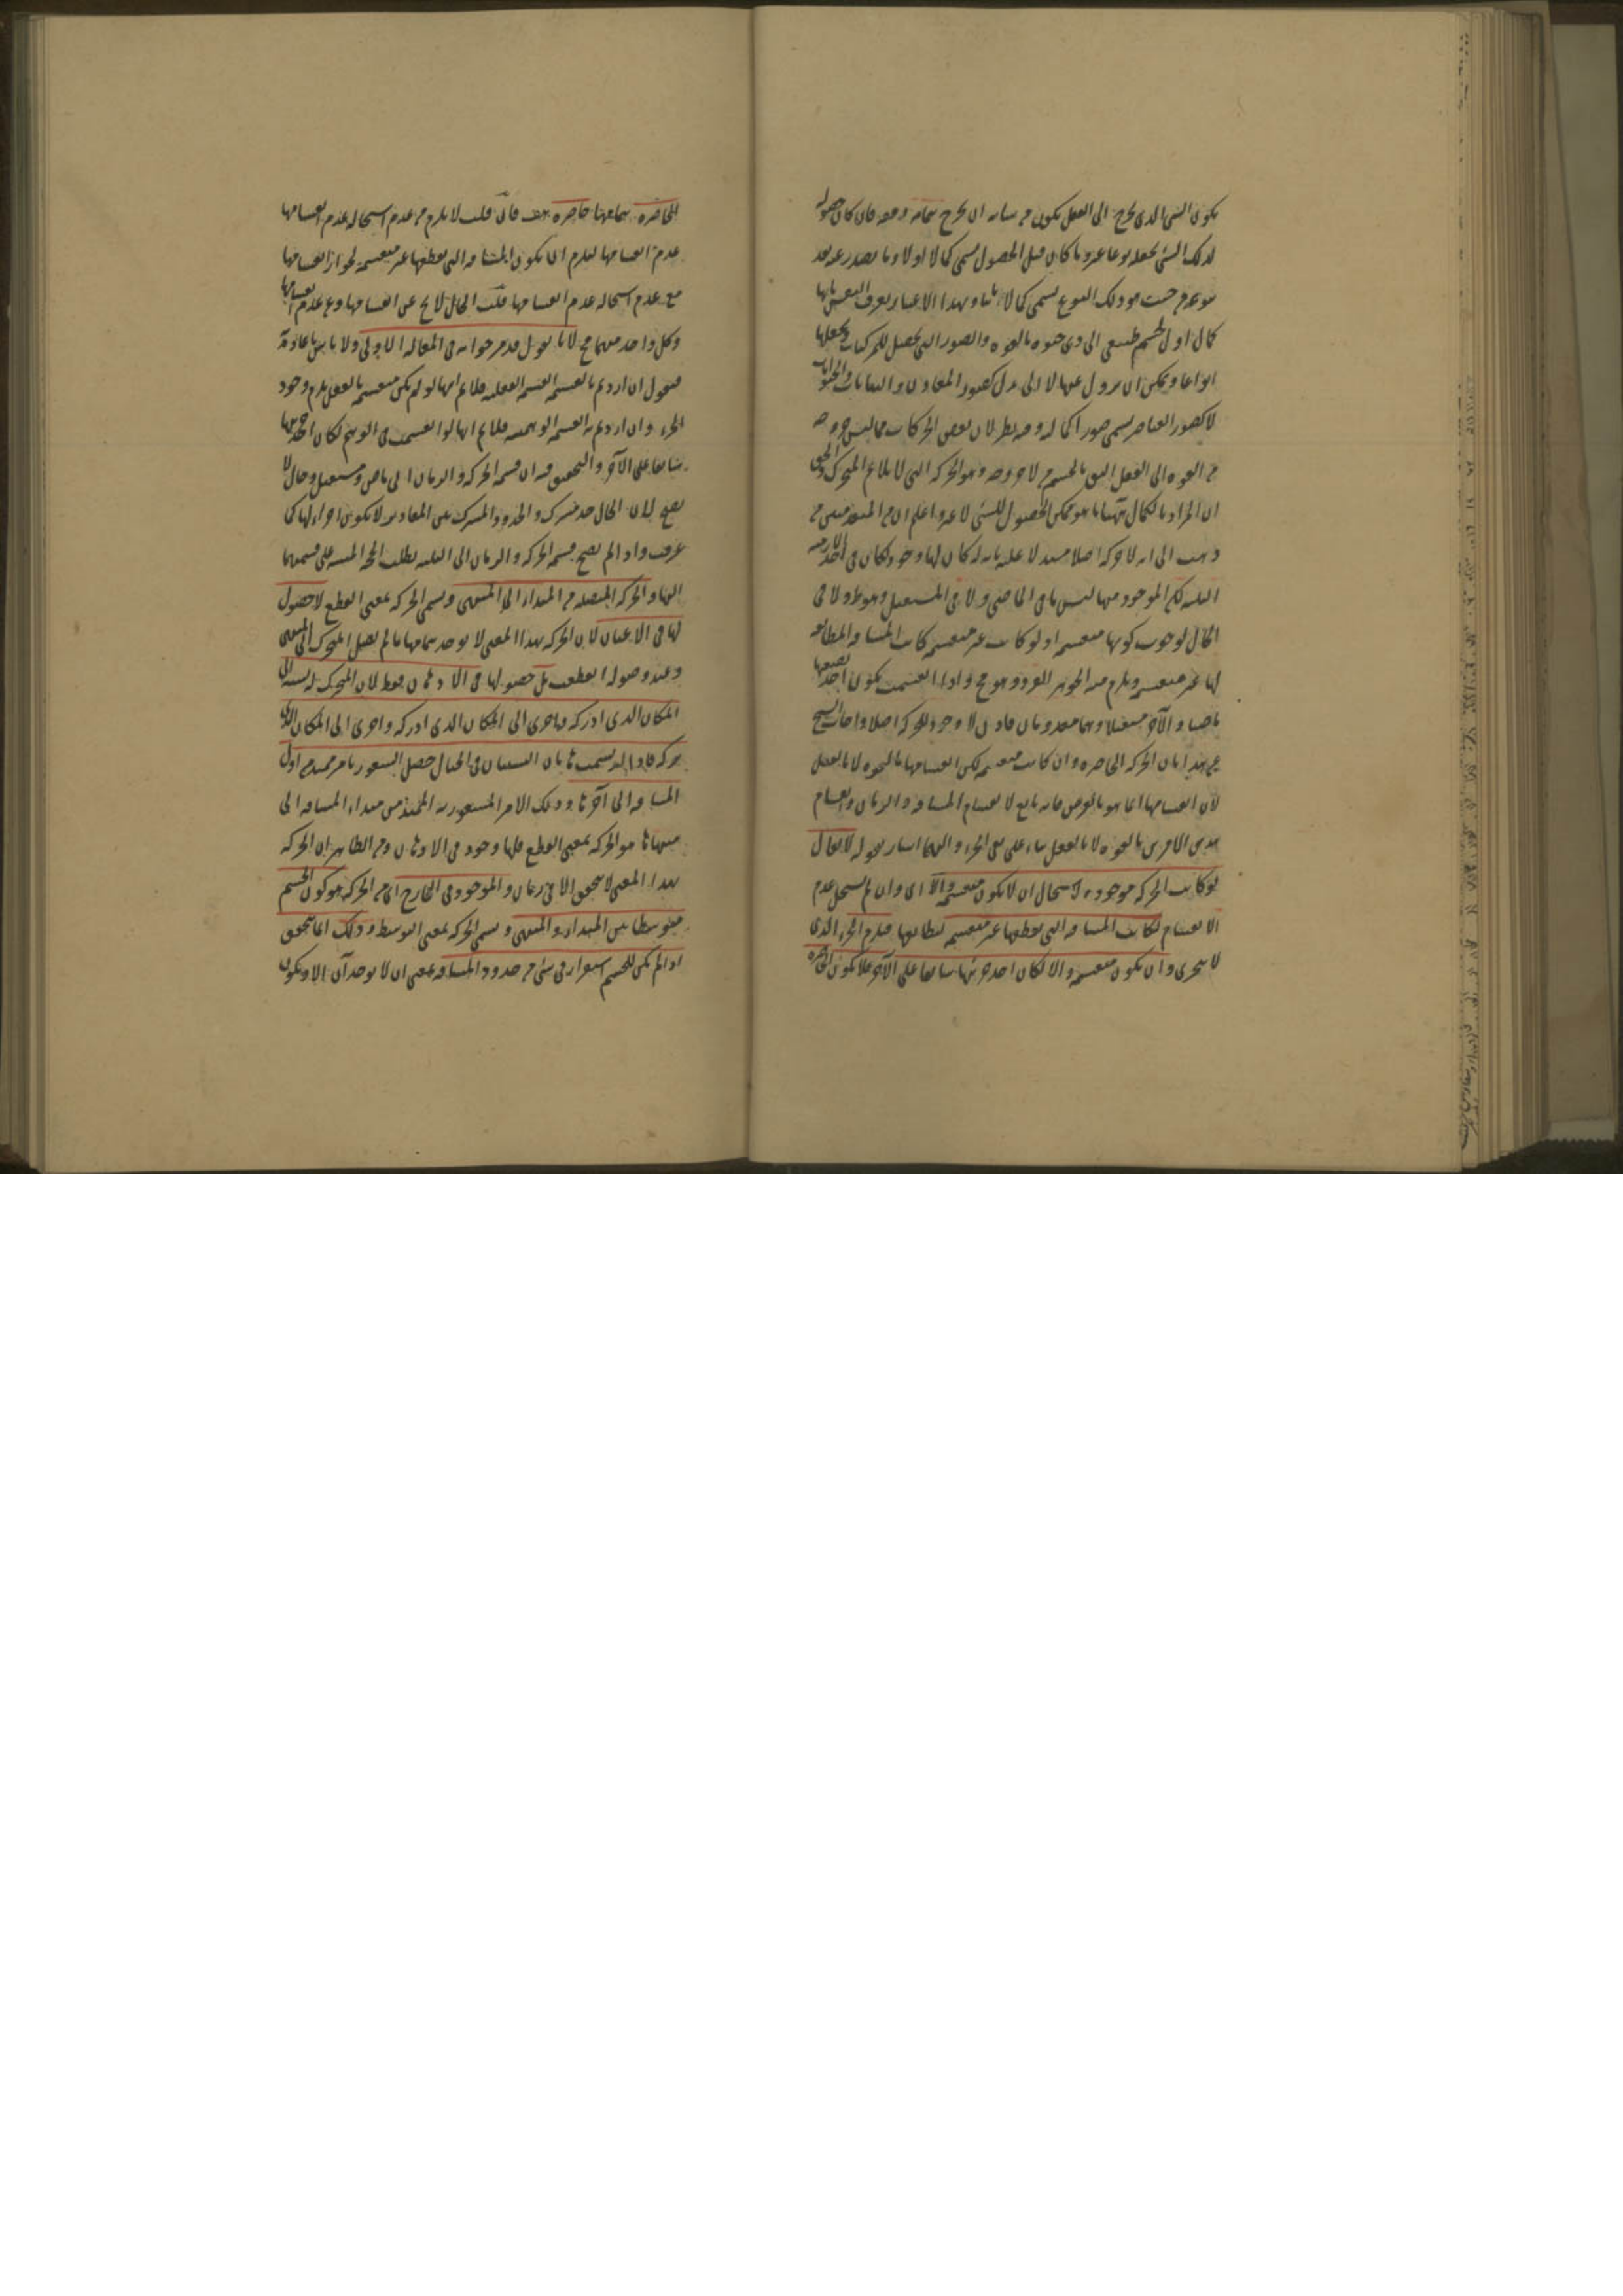 يكون الشى الذى يخرج الى الفعل يكون من شانه ان يخرج بتمامه دفعه فان كان حصوله
لذلك الشى يجعله نوعا غير ما كان قبل الحصول يسمى كمالا اولا وما يصدر عنه بعد
نوعه من حيث هو ذلك النوع يسمى كمالا ثانيا وبهذا الاعتبار يعرف النفس بانها
كمال اول لجسم طبيعى الى ذى حيوه بالقوه والصور التى تحصل للمركبات وتجعلها
انواعا ويمكن ان يزول عنها لا الى بدل كصور المعادن والنباتات والحيوانات
لا كصور العناصر يسمى صورا كماليه وفيه نظر لان بعض الحركات مما ليس خروجه
من القوه الى الفعل اليق بالجسم من لا خروجه وهو الحركه التى لا يلائم المتحرك والحق
ان المراد بالكمال ههنا ما هو ممكن الحصول للشى لا غير واعلم ان من المتقدمين من
ذهب الى انه لا حركه اصلا مستدلا عليه بانه لو كان لها وجود لكان فى احد الازمنه
الثلثه لكن الموجود منها ليس ما فى الماضى ولا فى المستقبل وهو ظ ولا فى
الحال لوجوب كونها منقسمه اذ لو كانت غير منقسمه كانت المسافه المطابقه
لها غير منقسمه ويلزم منه الجوهر الفرد وهو مح واذا انقسمت يكون احد نصفيها
ماضيا والآخر مستقبلا وهما معدومان فاذن لا وجود للحركه اصلا واجاب الشيخ
عن هذا بان الحركه الحاضره وان كانت منقسمه لكن انقسامها بالقوه لا بالفعل
لان انقسامها انما هو بالعرض فانه تابع لانقسام المسافه والزمان وانقسام
هذين الامرين بالقوه لا بالفعل بناء على نفى الجزء والهما اشار بقوله لا يقال
لو كانت الحركه موجوده لاستحال ان لا يكون منقسمه والا اى وان لم يستحل عدم
الانقسام لكانت المسافه التى يقطعها غير منقسمه لتطابقها فيلزم الجزء الذى
لا يتجزى وان يكون منقسمه والا لكان احد جزئيها سابقا على الآخر فلا يكون الحاضره
الحاضره بتمامها حاضره هف فان قلت لا يلزم من عدم استحاله عدم انقسامها
عدم انقسامها ليلزم ان يكون المسافه التى يقطعها غير منقسمه لجواز انقسامها
مع عدم استحاله عدم انقسامها قلت الحال لا يخ عن انقسامها وعدم انقسامها
وكل واحد منهما مح لانا نقول قد مر جوابه فى المقاله الاولى ولا باس باعادته
فنقول ان اردتم بالقسمه القسمه الفعليه فلا نم انها لو لم يكن منقسمه بالفعل يلزم وجود
الجزء وان اردتم به القسمه الوهميه فلا نم انها لو انقسمت فى الوهم لكان احد جزئيها
سابقا على الآخر والتحقيق فيه ان قسمه الحركه والزمان الى ماض ومستقبل وحال لا
يصح لان الحال حد مشترك والحدود المشتركه بين المقادير لا يكون اجزاء لها كما
عرفت واذا لم يصح قسمه الحركه والزمان الى الثلثه بطلت الحجه المبنيه على قسمتهما
اليها والحركه المتصله من المبداء الى المنتهى وتسمى الحركه بمعنى القطع لا حصول
لها فى الاعيان لان الحركه بهذا المعنى لا يوجد بتمامها ما لم يصل المتحرك الى المنتهى
وعند وصوله انقطعت بل حصولها فى الاذهان فقط لان المتحرك له نسبه الى
المكان الذى ادركه واخرى الى المكان الذى ادركه واخرى الى المكان الذى
يتركه فاذا ارتسمت هاتان النسبتان فى الخيال حصل الشعور بامر ممتد من اول
المسافه الى آخرها وذلك الامر المشعور به الممتد من مبداء المسافه الى
منتهاها هو الحركه بمعنى القطع فلها وجود فى الاذهان ومن الظاهر ان الحركه
بهذا المعنى لا يتحقق الا فى زمان والموجود فى الخارج اى من الحركه هو كون الجسم
متوسطا بين المبداء والمنتهى ويسمى الحركه بمعنى التوسط وذلك انما يتحقق
اذا لم يكن للجسم استقرار فى شى من حدود المسافه بمعنى ان لا يوجد آن الا ويكون